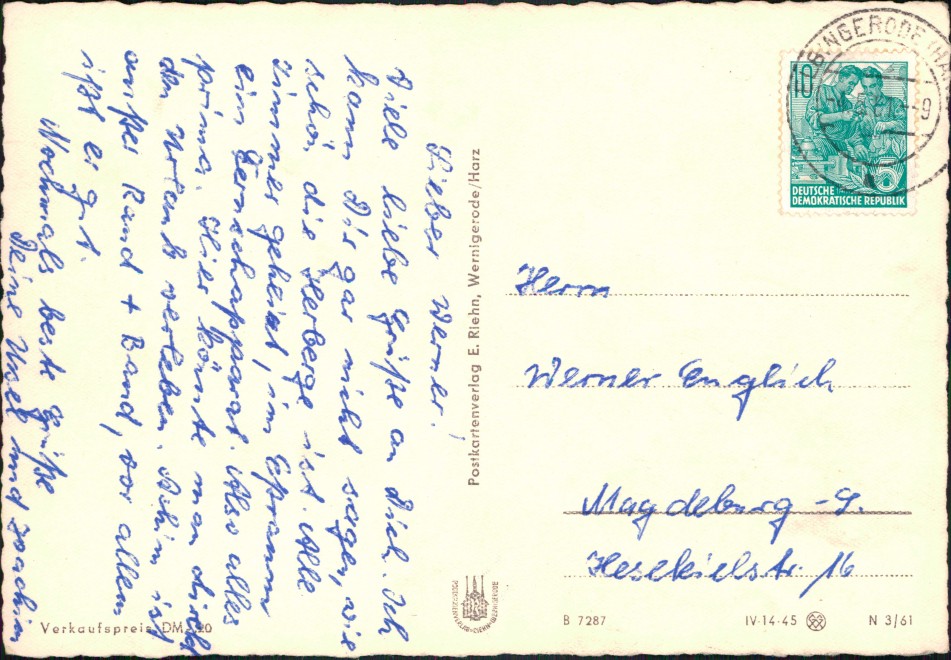 Lieber Werner!
Viele liebe Grüße an Dich. Ich
kann Dir gar nicht sagen, wie
schön die Herberge ist. Alle
Zimmer geheizt, im
ein Fernsehapparat. Also alles
prima. Hier könnte man direkt
den Urlaub verleben. Achim ist
außer Rand + Band, vor allem
ißt er gut.
Nochmals beste Grüße
Deine und Joachim
Verkaufspreis DM
Postkartenverlag E. Riehn, Wernigerode/Harz
10
5
DEUTSCHE
DEMOKRATISCHE REPUBLIK
Herrn
Werner Englich
Magdeburg - S.
Hesekielstr. 16
B 7287
IV-14-45
N 3/61